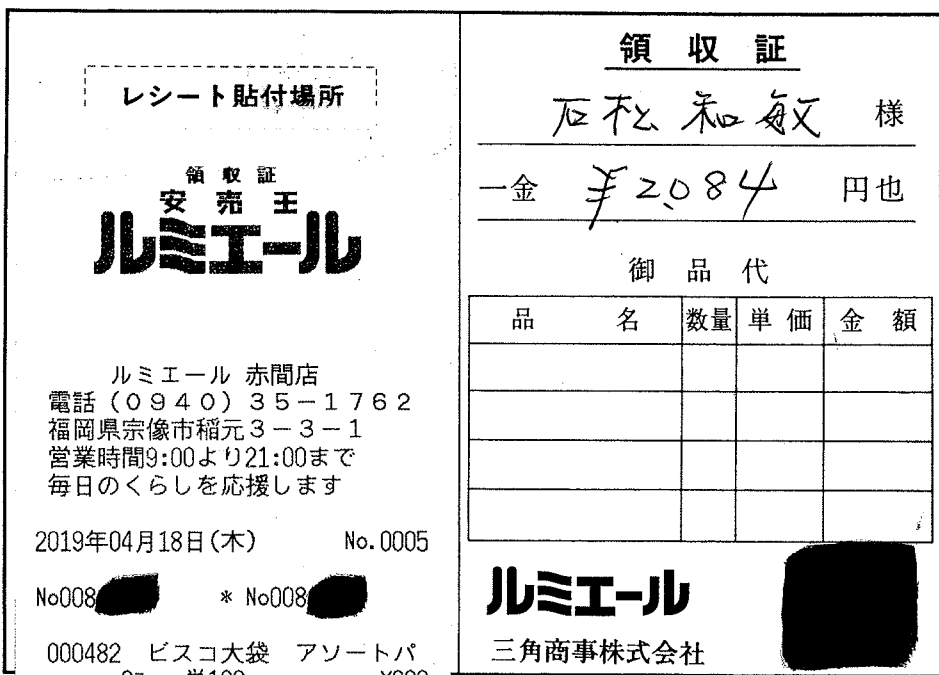 レシート貼付場所
領収証
安売王
ルミエール
ルミエール 赤間店
電話(0940)35-1762
福岡県宗像市稲元3-3-1
営業時間9:00より21:00まで
毎日のくらしを応援します
2019年04月18日(木) No.0005
No008 * No008
000482 ビスコ大袋 アソートパ
領収証
石松和敏 様
一金 ¥2,084 円也
御品代
品名 数量 単価 金額
ルミエール
三角商事株式会社